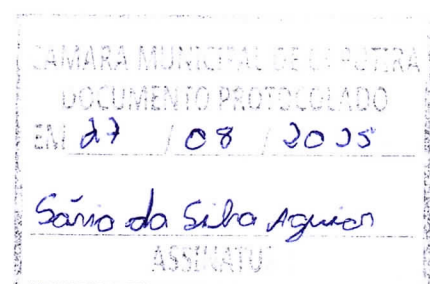 CÂMARA MUNICIPAL DE
DOCUMENTO PROTOCOLADO
EM 27 / 08 / 2025
da Silva Aguiar
ASSINATU